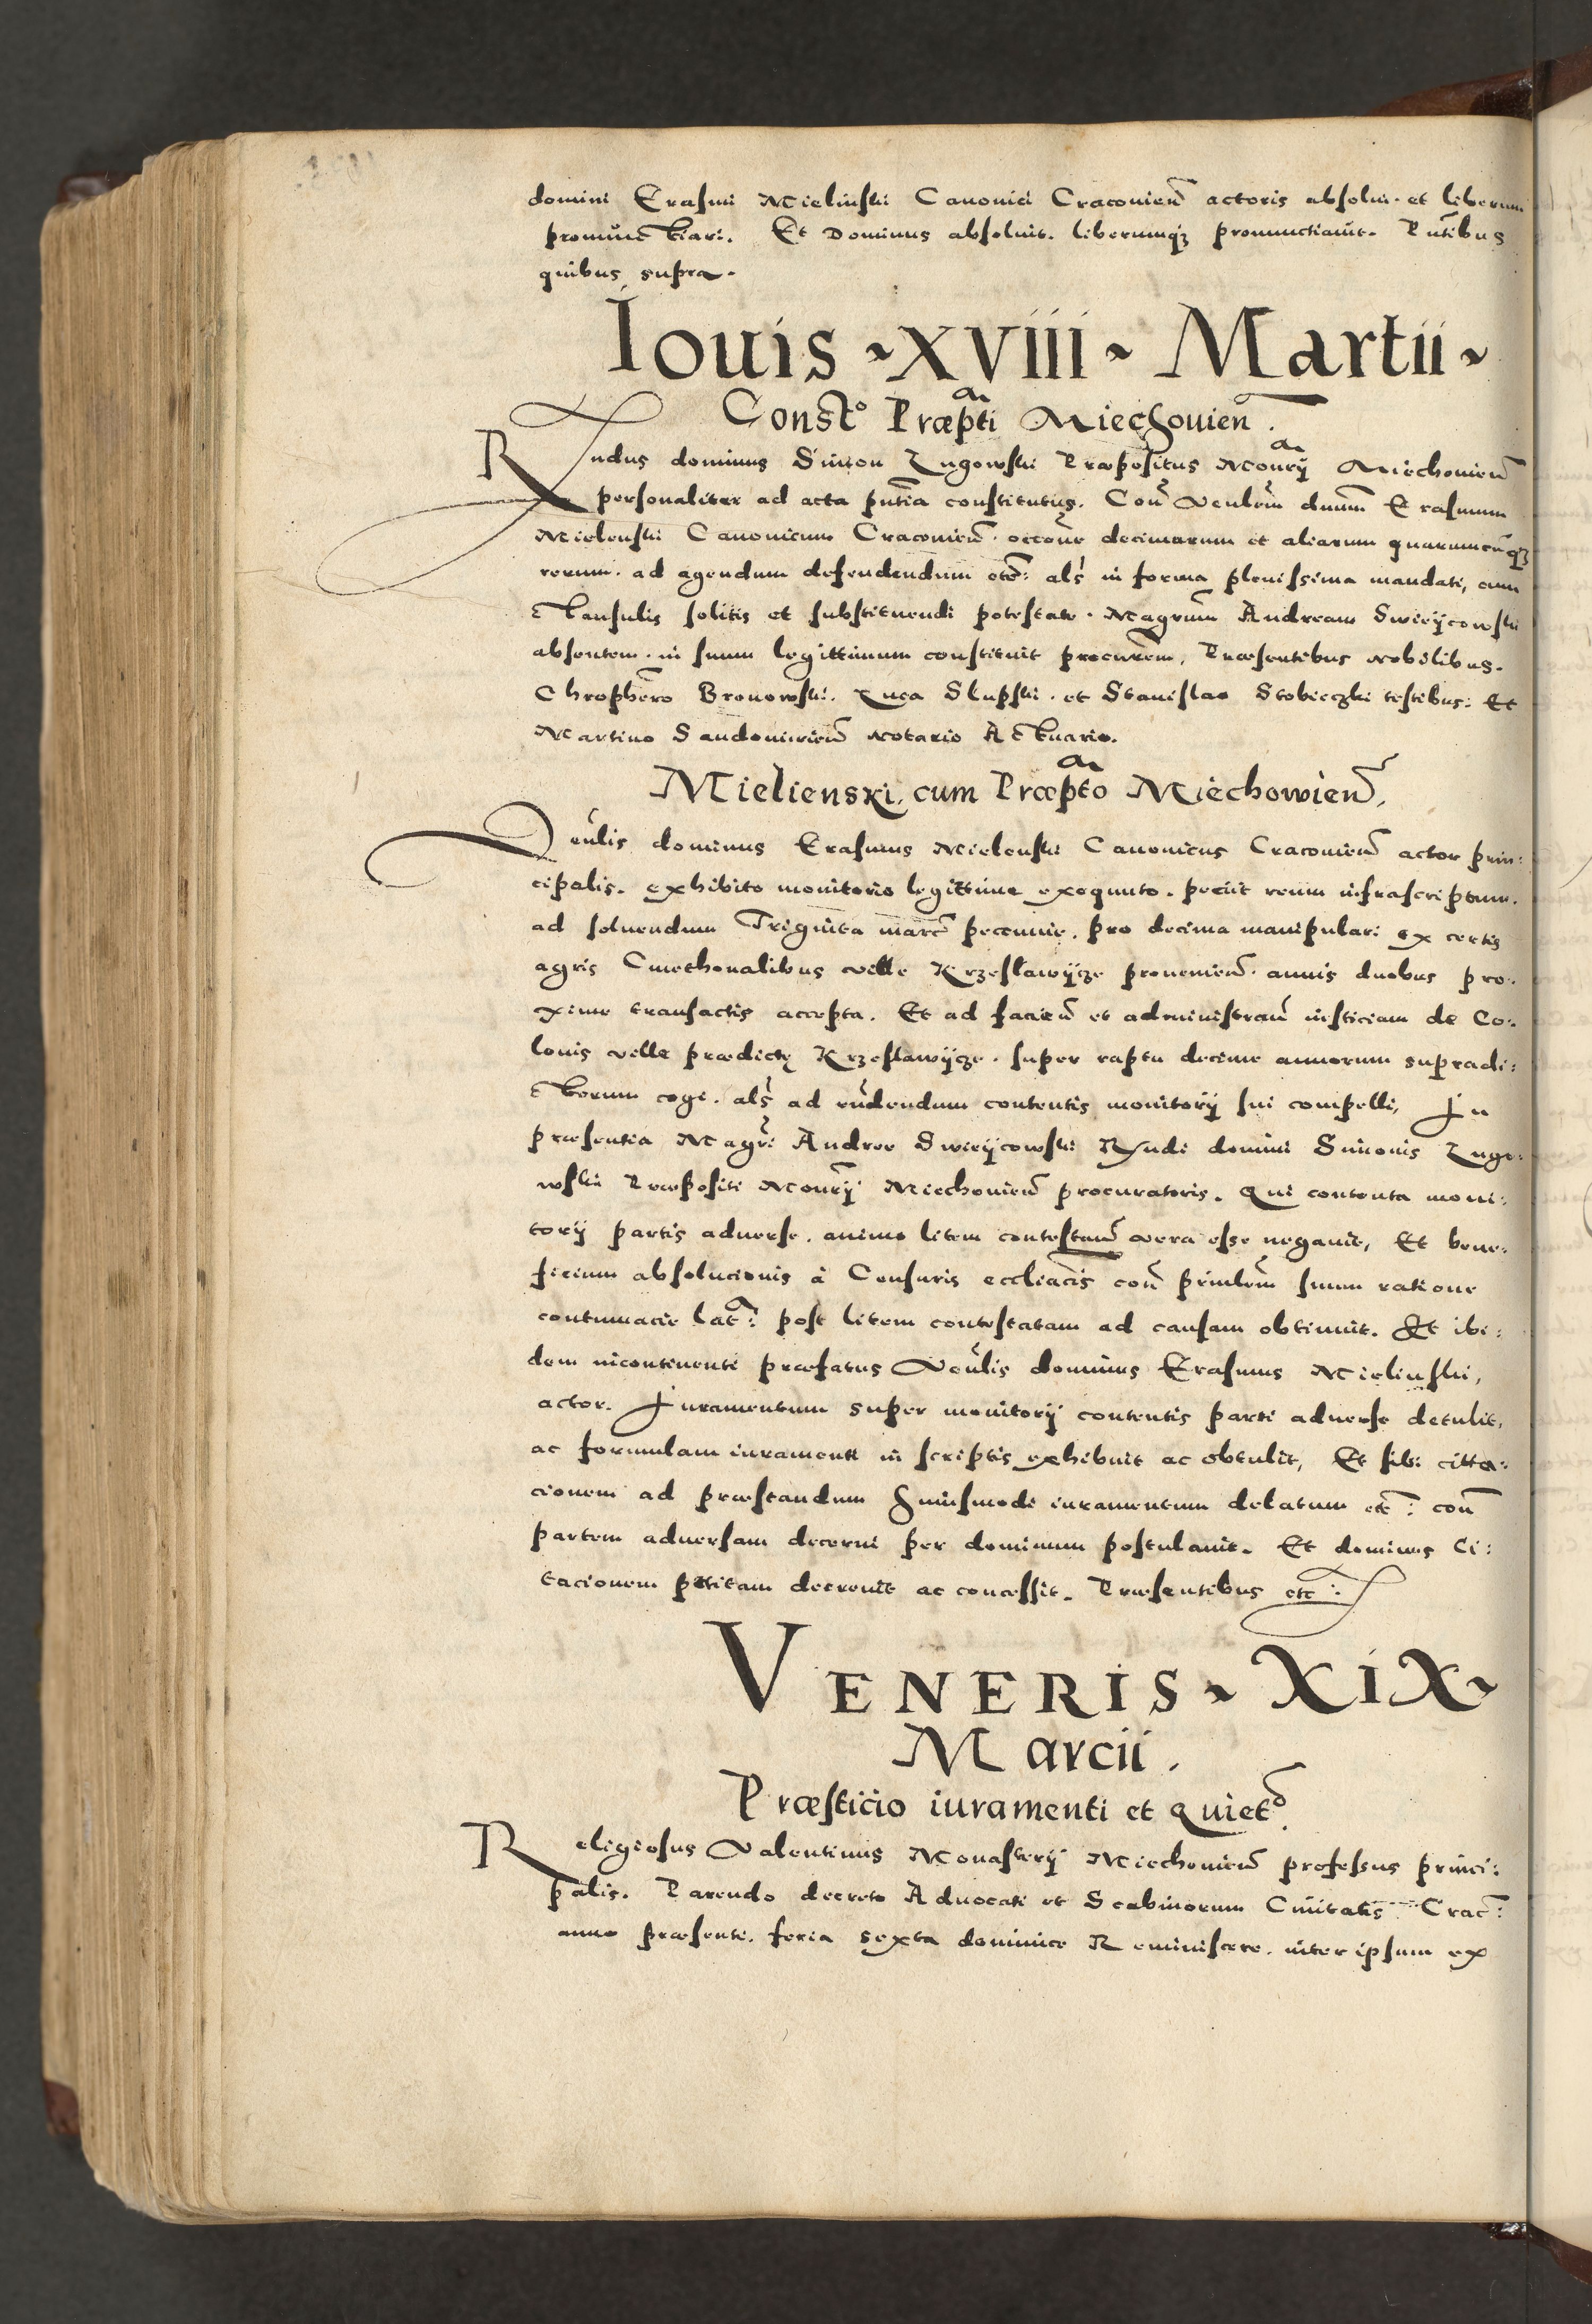 domini Erasmi Mielinski Canonici Cracovien̄ actoris absolui. et liberum
pronunctiari. Et Dominus absoluit. liberumqȝ pronunctiauit. Pn̄tibus
quibus supra.
Iouis ~ XVIII ~ Martii ~
Const° Præpti Miechouien̄.
Rndus dominus Simon Lugowski Præpositus Monrÿ Miechouien̄
personaliter ad acta pn̄tia constitutus. Con̄ Venlem dnum Erasmum
Mielenski Canonicum Cracouien̄. occōne decimarum et aliarum quarumcūqȝ
rerum. ad agendum defendendum etc̄: als in forma plenissima mandati, cum
clausulis solitis et substituendi potestate. Magrum Andream Swieÿcowski
absentem. in suum legittimum constituit procurem, Præsentibus nobilibus.
Chrophero Bronowski. Luca Slupski. et Stanislao Stobieczki testibus: Et
Martino Sandomirien̄ Notario Actuario.
Mielienski cum Præpto Miechowien̄.
Venlis dominus Erasmus Mielenski Canonicus Cracouien̄ actor prin:
cipalis. exhibito monitorio legittime exequuto. peciit reum infrascriptum.
ad soluendum Triginta marc̄ peccunie. pro decima manipulari ex certis
agris Cmethonalibus ville Krzeslawÿcze prouenien̄. annis duobus pro:
xime transactis accepta. Et ad facien̄ et administran̄ iusticiam de Co:
lonis ville prædictę Krzeslawÿcze. super raptu decime annorum supradi:
ctorum cogi. als ad rn̄dendum contentis monitorÿ sui compelli, In
præsentia Magri Andree Swieÿcowski Rndi domini Simonis Lugo:
wski Præpositi Monrÿ Miechouien̄ procuratoris. Qui contenta moni:
torÿ partis aduerse. animo litem contestan̄ vera esse negauit, Et bene:
ficium absolucionis à Censuris eccliacis con̄ prinlem suum ratione
contumacie lat̄: post litem contestatam ad causam obtinuit. Et ibi:
dem incontinenti præfatus Venlis dominus Erasmus Mielinski,
actor. Iuramentum super monitorÿ contentis parti aduerse detulit,
ac formulam iuramenti in scriptis exhibuit ac obtulit, Et sibi citta:
cionem ad præstandum huiusmodi iuramentum delatum etc̄: con̄
partem aduersam decerni per dominum postulauit. Et dominus Ci:
tacionem petitam decreuit ac concessit. Præsentibus etc̄:
VENERIS ~ XIX ~
Marcii.
Præsticio iuramenti et Quiet°.
Religiosus Valentinus Monasterÿ Miechouien̄ professus princi:
palis. Parendo decreto Aduocati et Scabinorum Ciuitatis Crac̄:
anno præsenti. feria sexta dominice Reminiscere. inter ipsum ex